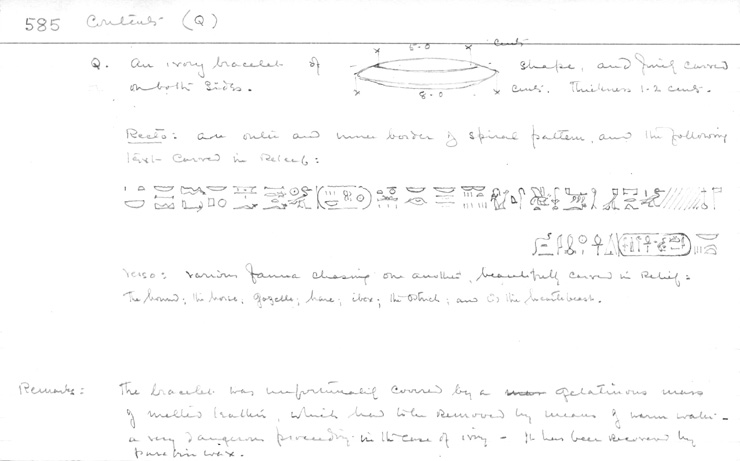 585 Contents (Q)
Q. An ivory bracelet of shape, and finely carved
5.0 cents
8.0 cents. Thickness 1.2 cents.
on both sides.
Recto: an outer and inner border of spiral pattern, and the following
text carved in Relief:
Verso: various fauna chasing one another, beautifully carved in Relief:
The hound; the horse; gazelle; hare; ibex; the Ostrich; and the hartebeast.
Remarks: The bracelet was unfortunately covered by a gelatinous mass
of melted leather, which had to be removed by means of warm water -
a very dangerous proceeding in the case of ivory - It has been recovered by
paraffin wax.